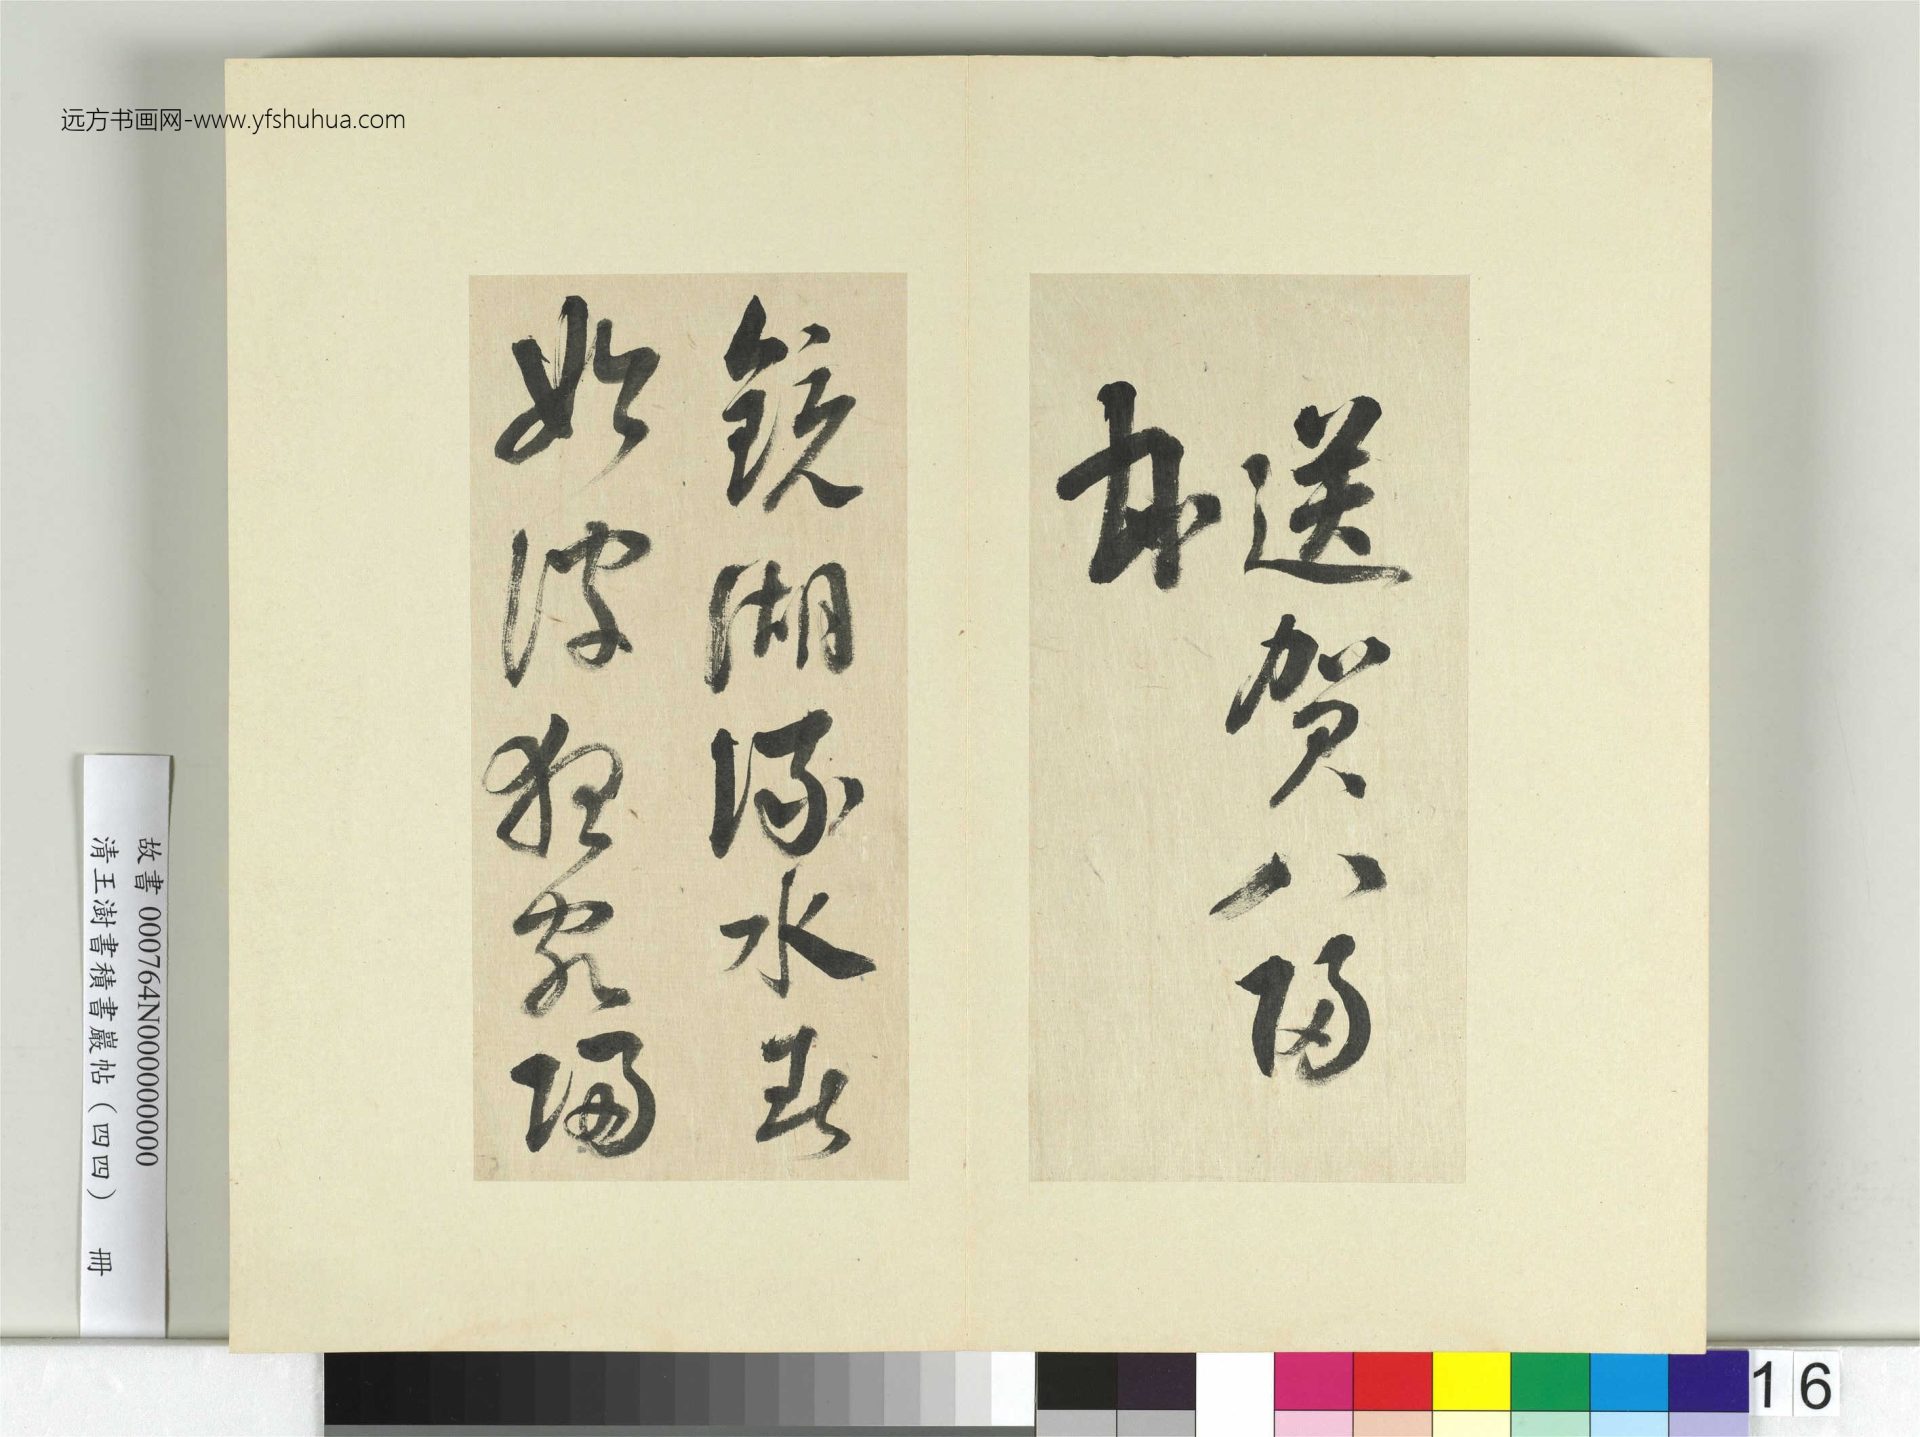 远方书画网-www.yfshuhua.com
送賀八歸
鏡湖流水春
始波狂客歸
故書 000764N000000000
清王澍書積書巖帖(四四) 冊
16